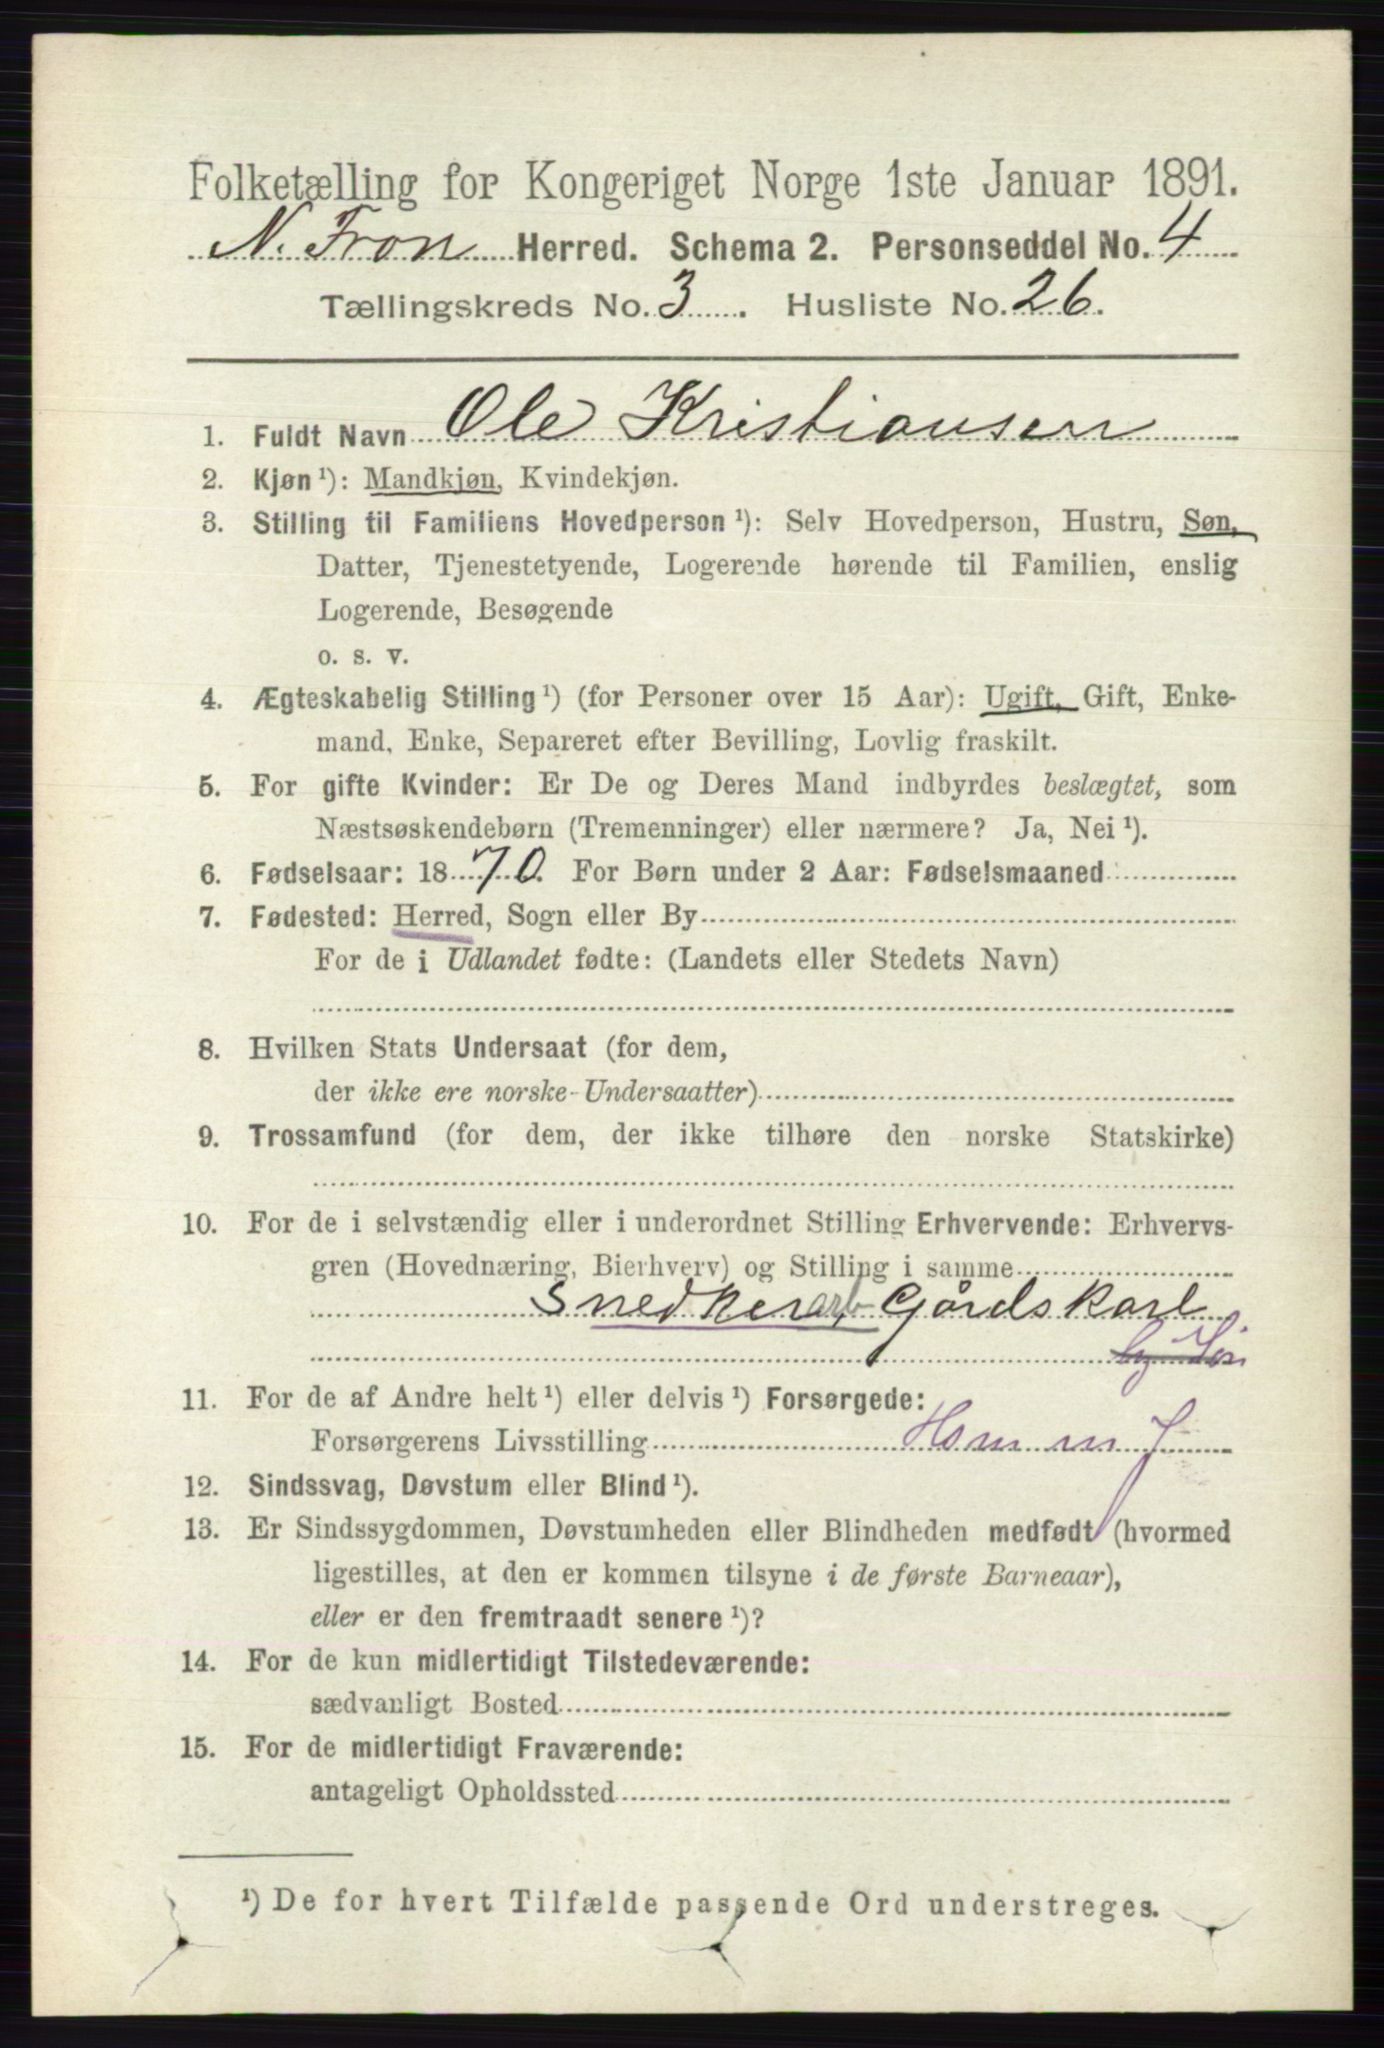 Folketælling for Kongeriget Norge 1ste Januar 1891.
N. Fron Herred. Schema 2. Personseddel No. 4
Tællingskreds No. 3. Husliste No. 26.
1. Fuldt Navn Ole Kristiansen
2. Kjøn ¹): Mandkjøn, Kvindekjøn.
3. Stilling til Familiens Hovedperson ¹): Selv Hovedperson, Hustru, Søn,
Datter, Tjenestetyende, Logerende hørende til Familien, enslig
Logerende, Besøgende
o. s. v.
4. Ægteskabelig Stilling ¹) (for Personer over 15 Aar): Ugift, Gift, Enke-
mand, Enke, Separeret efter Bevilling, Lovlig fraskilt.
5. For gifte Kvinder: Er De og Deres Mand indbyrdes beslægtet, som
Næstsøskendebørn (Tremenninger) eller nærmere? Ja, Nei ¹).
6. Fødselsaar: 1870. For Børn under 2 Aar: Fødselsmaaned
7. Fødested: Herred, Sogn eller By
For de i Udlandet fødte: (Landets eller Stedets Navn)
8. Hvilken Stats Undersaat (for dem,
der ikke ere norske Undersaatter)
9. Trossamfund (for dem, der ikke tilhøre den norske Statskirke)
10. For de i selvstændig eller i underordnet Stilling Erhvervende: Erhvervs-
gren (Hovednæring, Bierhverv) og Stilling i samme
Snedkerarb, Gårdskarl
11. For de af Andre helt ¹) eller delvis ¹) Forsørgede:
Forsørgerens Livsstilling
12. Sindssvag, Døvstum eller Blind ¹).
13. Er Sindssygdommen, Døvstumheden eller Blindheden medfødt (hvormed
ligestilles, at den er kommen tilsyne i de første Barneaar),
eller er den fremtraadt senere ¹)?
14. For de kun midlertidigt Tilstedeværende:
sædvanligt Bosted
15. For de midlertidigt Fraværende:
antageligt Opholdssted
¹) De for hvert Tilfælde passende Ord understreges.